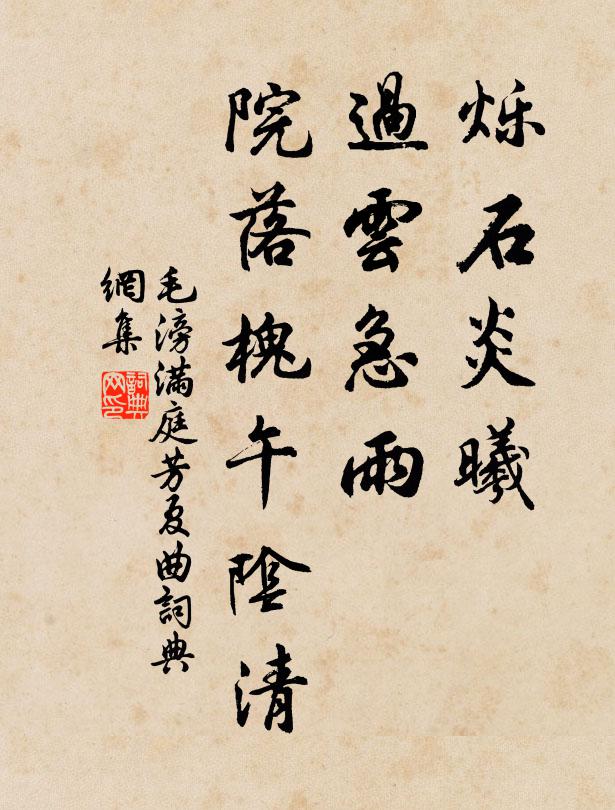 烁石炎曦
過雲急雨
院落槐午陰清
毛滂滿庭芳夏曲詞典
網集
詞典网印